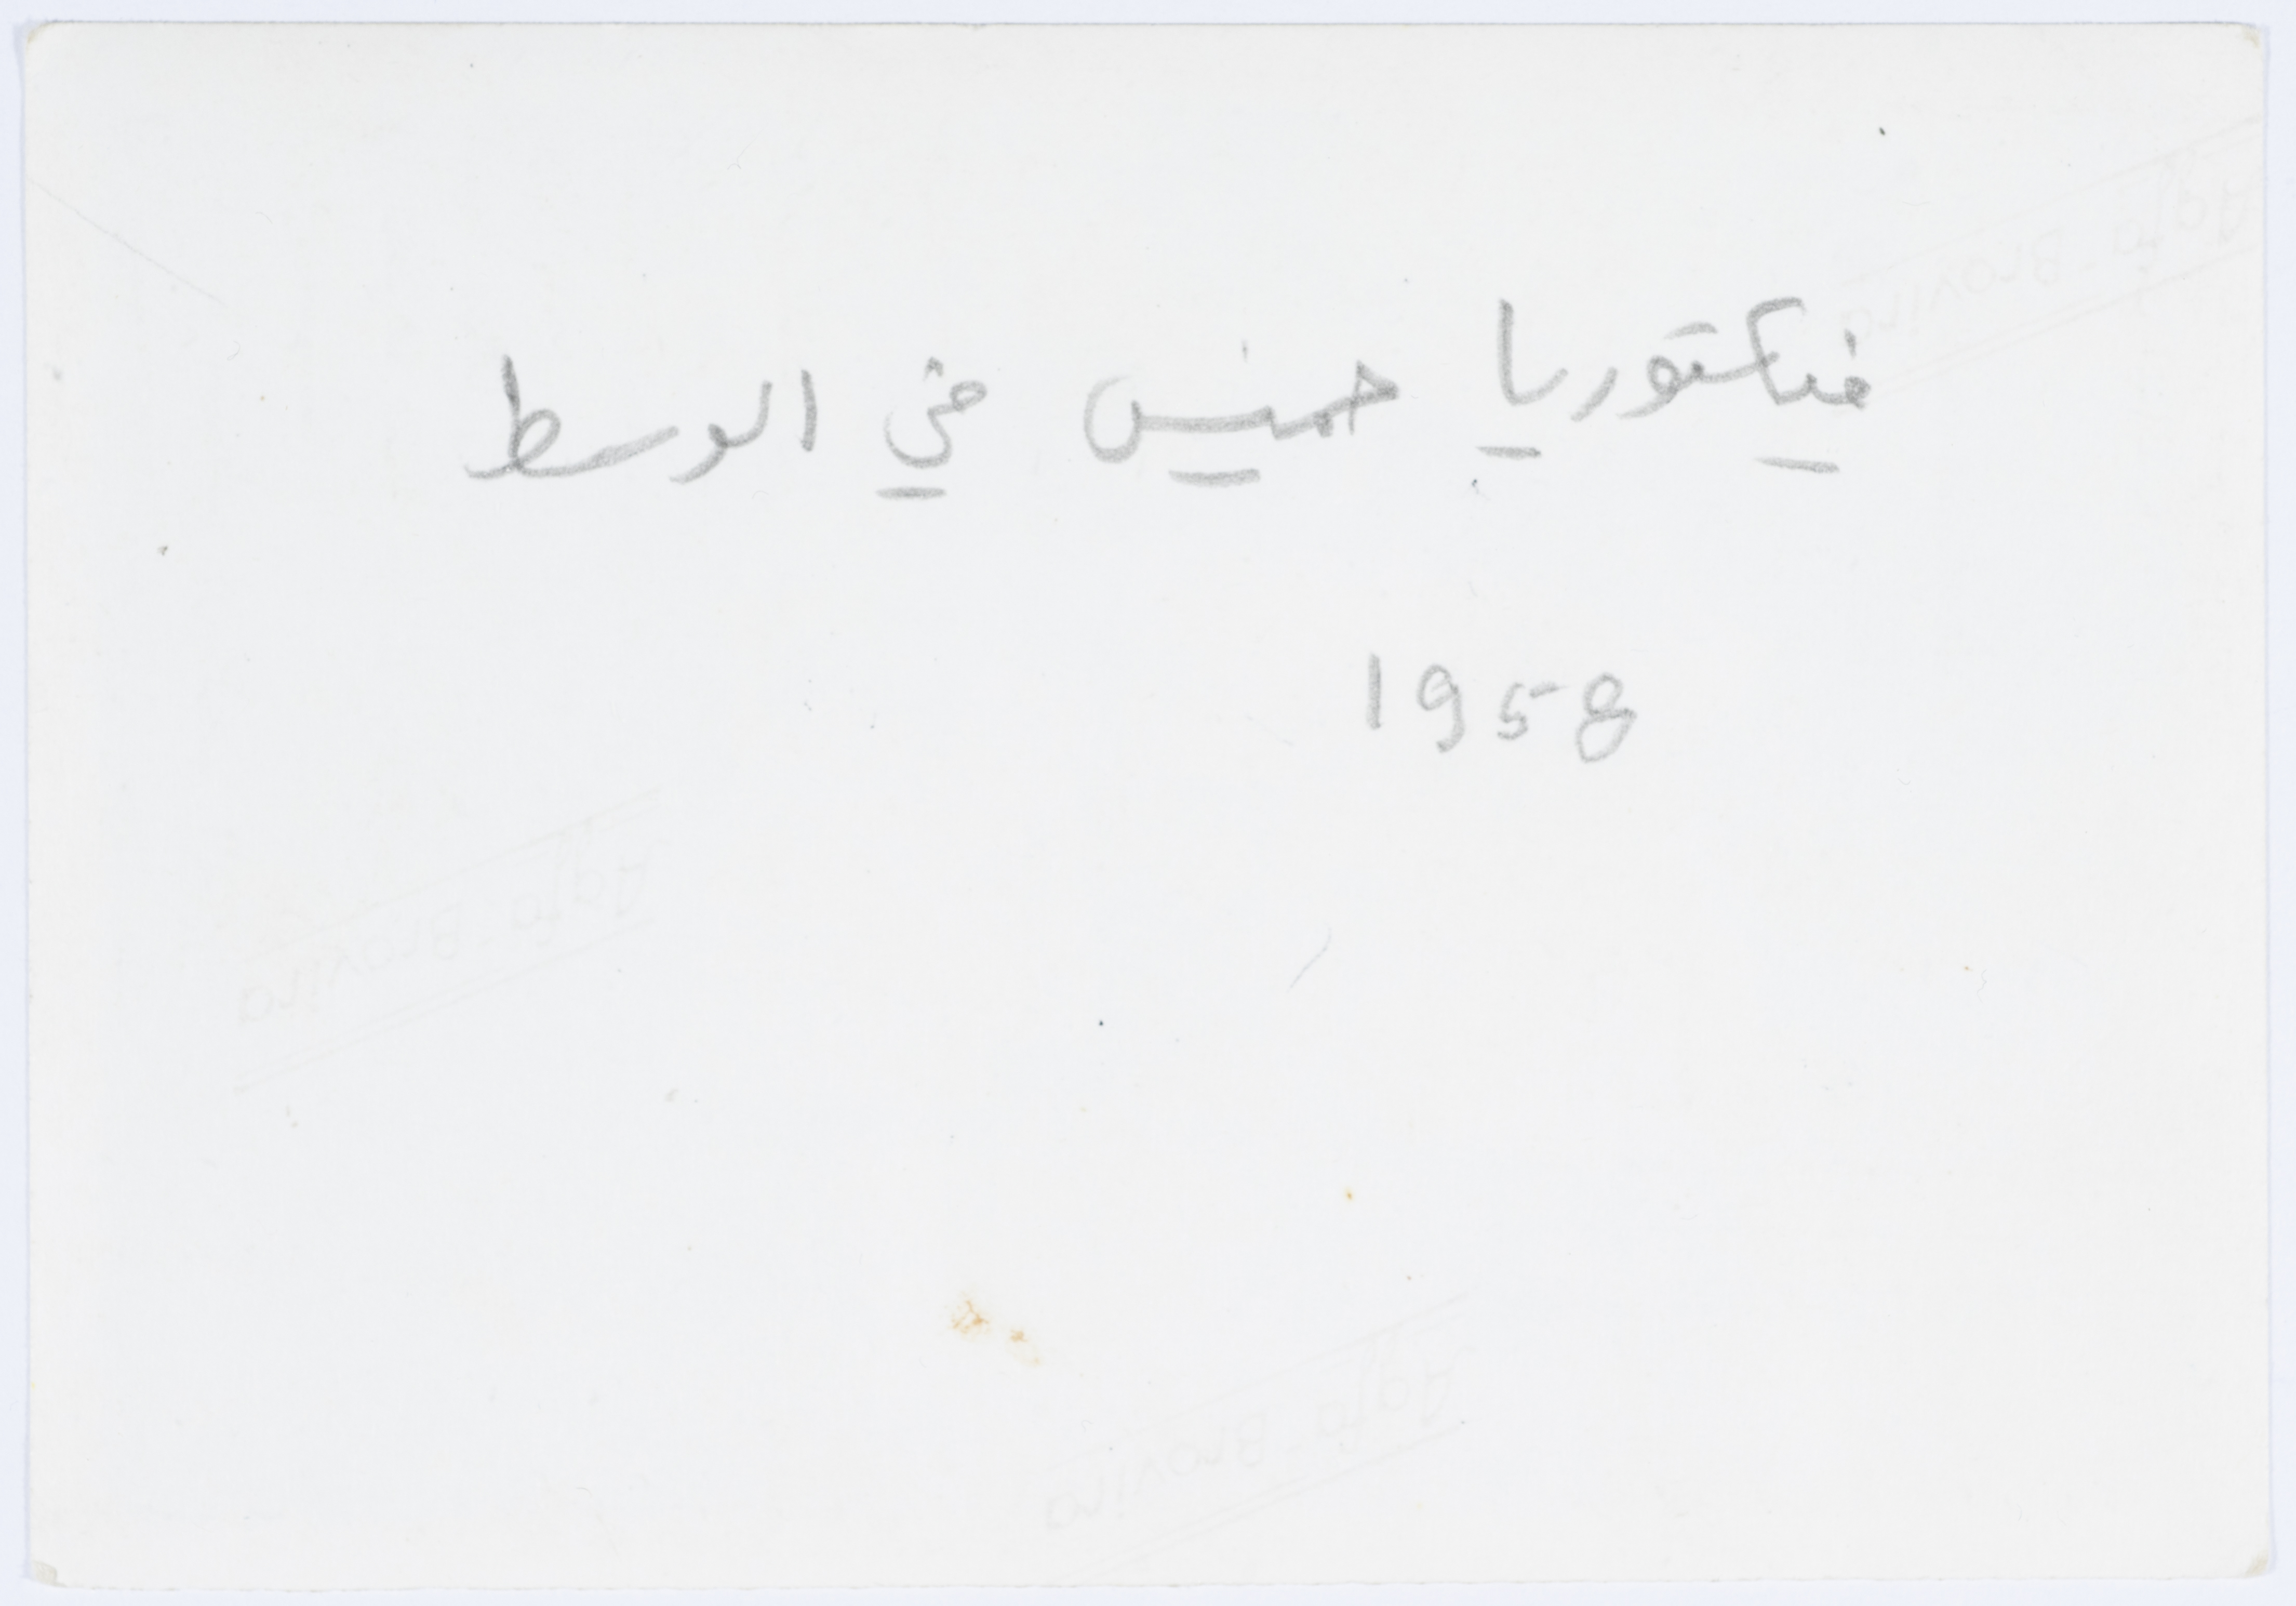 Agfa-Brovira
فيكتوريا خميس في الوسط
1958
Agfa-Brovira
Agfa-Brovira